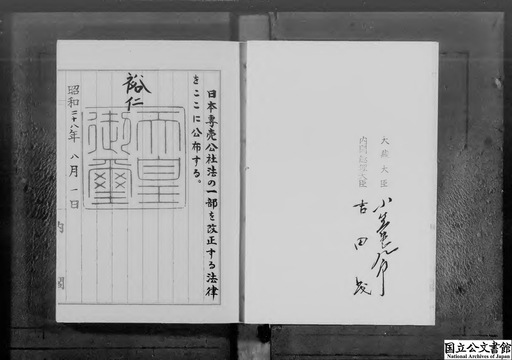 日本専売公社法の一部を改正する法律
をここに公布する。
裕仁
天皇
御璽
昭和二十八年八月一日
内閣
大蔵大臣
小笠原三九郎
内閣総理大臣
吉田茂
国立公文書館
National Archives of Japan